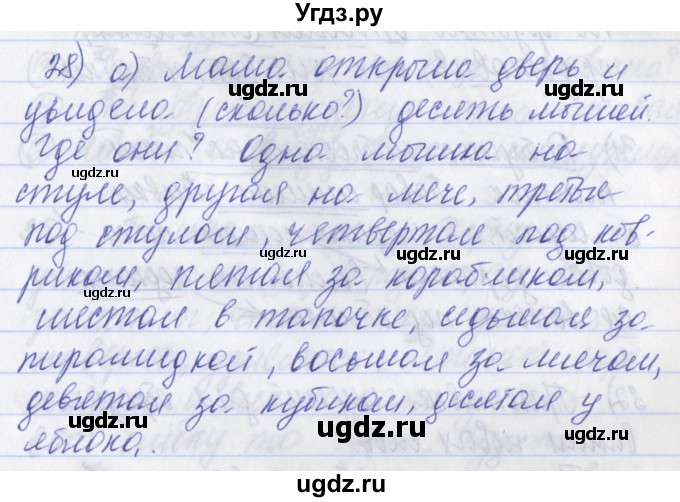 Угдз.ру
28) а) Мама открыла дверь и
увидела (сколько?) десять мышей.
Где они? Одна мышка на
стуле, другая на мече, третье
под стулом, четвертая под ков-
риком, пятая за корабликом,
шестая в тапочке, седьмая за
пирамидкой, восьмая за мячом,
девятая за кубиком, десятая у
яблока.
ugdz.ru
ugdz.ru
ugdz.ru
ugdz.ru
ugdz.ru
ugdz.ru
ugdz.ru
ugdz.ru
ugdz.ru
ugdz.ru
ugdz.ru